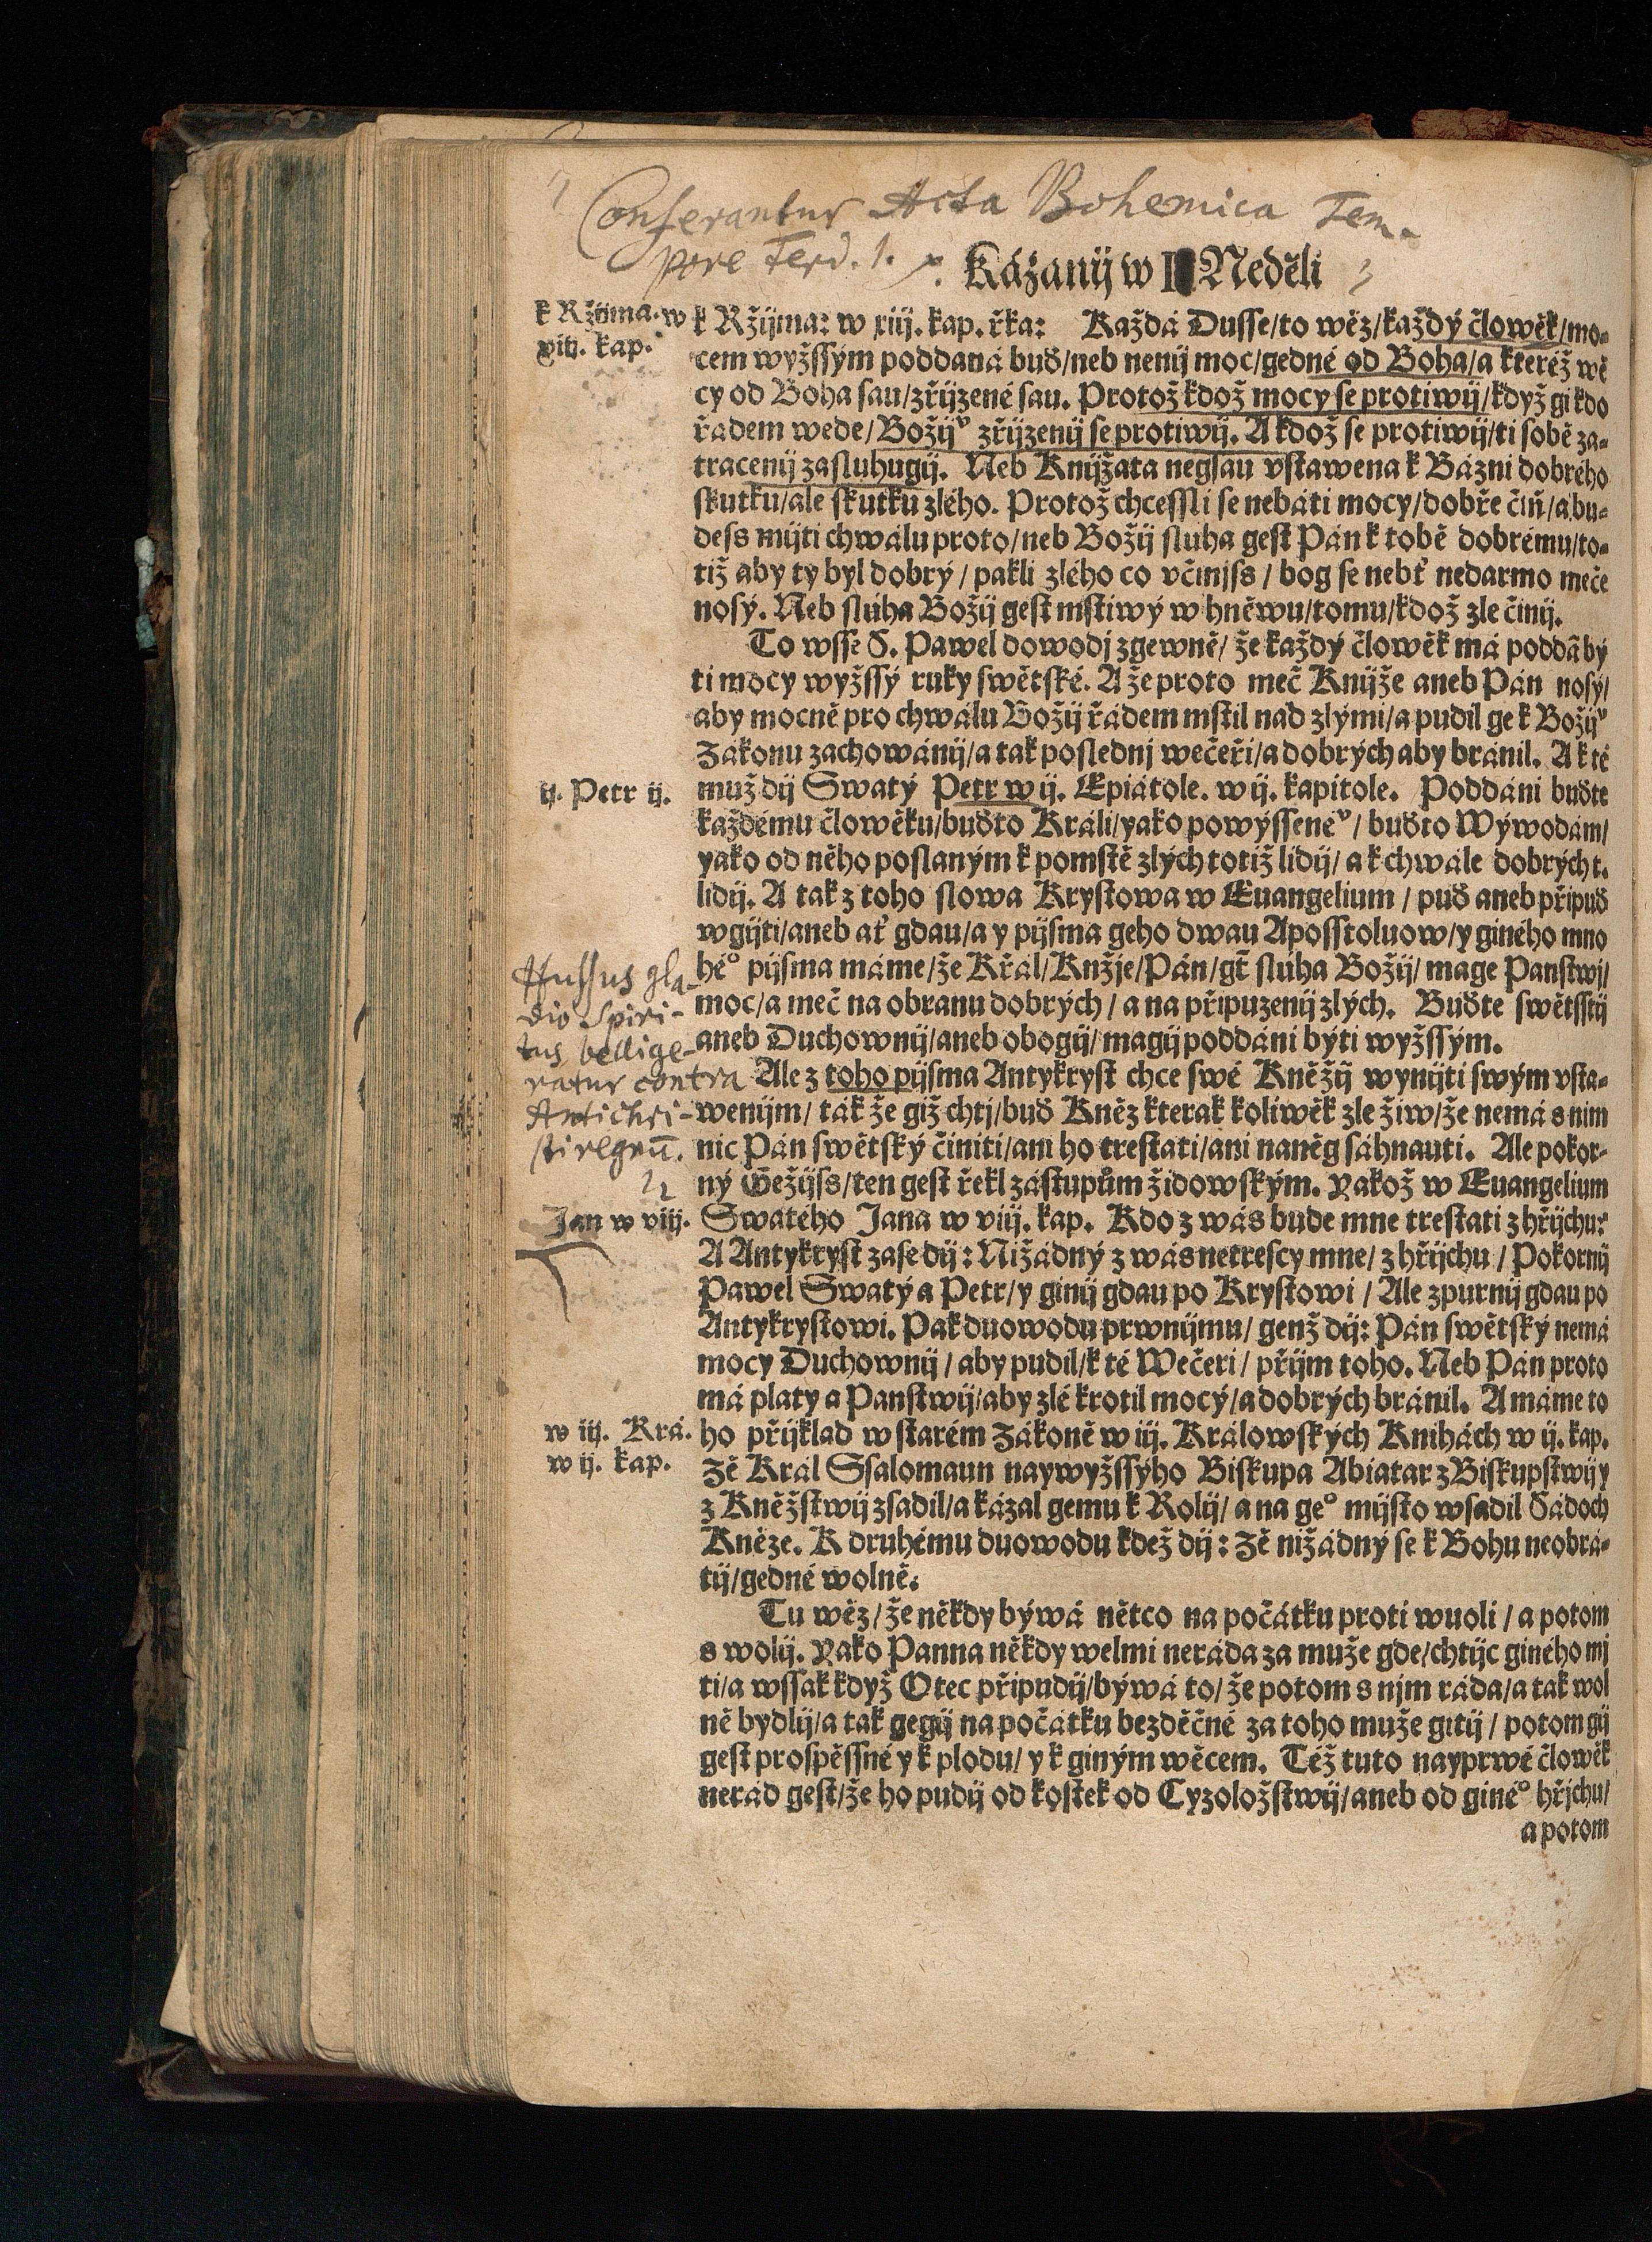 Conferantur Acta Bohemica Tem-
pore Ferd. 1.
Kázanij w II Neděli
k Ržijma. w
xiij. kap.
k Ržijma: w xiij. kap. řka: Každá Dusse/to wěz/každý člowěk/mo-
cem wyžssým poddaná buď/neb nenij moc/gedné od Boha/a kteréž wě
cy od Boha sau/zřijzené sau. Protož kdož mocy se protiwij/když gi kdo
řádem wede/Božijᵛ zřijzenij se protiwij. A kdož se protiwij/ti sobě za-
tracenij zasluhugij. Neb Knijžata negsau vstawena k Bázni dobrého
skutku/ale skutku zlého. Protož chcessli se nebáti mocy/dobře čiň/a bu-
dess mijti chwálu proto/neb Božij sluha gest Pán k tobě dobrému/to-
tiž aby ty byl dobrý/pakli zlého co včinjss/bog se nebť nedarmo meče
nosý. Neb slúha Božij gest mstiwý w hněwu/tomu/kdož zle činij.
To wsse S. Pawel dowodj zgewně/že každý člowěk má poddā bý
ti mocy wyžssý ruky swětské. A že proto meč Knijže aneb Pán nosý/
aby mocně pro chwálu Božij řádem mstil nad zlými/a pudil ge k Božijᵛ
Zákonu zachowánij/a tak poslednj wečeři/a dobrých aby bránil. A k té
ij. Petr ij.
muž dij Swatý Petr w ij. Epiátole. w ij. kapitole. Poddáni buďte
každému člowěku/buďto Králi/yako powýssenéᵛ/buďto Wýwodám/
yako od něho poslaným k pomstě zlých totiž lidij/a k chwále dobrých t.
lidij. A tak z toho slowa Krystowa w Euangelium/puď aneb připuď
wgijti/aneb ať gdau/a y pijsma geho dwau Aposstoluow/y giného mno
héᵒ pijsma máme/že Král/Knžje/Pán/gt̄ slúha Božij/mage Panstwj/
moc/a meč na obranu dobrých/a na připuzenij zlých. Buďte swětsstij
aneb Duchownij/aneb obogij/magij poddáni býti wyžssým.
Hussus gla-
dio Spiri-
tus bellige-
ratur contra
Antichri-
sti regnū.
Ale z toho pijsma Antykryst chce swé Kněžij wynijti swým vsta-
wenijm/tak že giž chtj/buď Kněz kterak koliwěk zle žiw/že nemá s nim
nic Pán swětský činiti/ani ho trestati/ani naněg sáhnauti. Ale pokor-
ný Gežijss/ten gest řekl zástupům židowským. Yakož w Euangelium
Jan w viij.
Swatého Jana w viij. kap. Kdo z wás bude mne trestati z hřijchu?
A Antykryst zase dij: Nižádný z wás netrescy mne/z hřijchu/Pokornij
Pawel Swatý a Petr/y ginij gdau po Krystowi/Ale zpurnij gdau po
Antykrystowi. Pak duowodu prwnijmu/genž dij: Pán swětský nemá
mocy Duchownij/aby pudil/k té Wečeři/přijm toho. Neb Pán proto
má platy a Panstwij/aby zlé krotil mocý/a dobrých bránil. A máme to
w iij. Krá.
w ij. kap.
ho přijklad w starém Zákoně w iij. Králowských Knihách w ij. kap.
Žě Král Ssalomaun naywyžssýho Biskupa Abiatar z Biskupstwij y
z Kněžstwij zsadil/a kázal gemu k Rolij/a na geᵒ mijsto wsadil Sádoch
Kněze. K druhému duowodu kdež dij: Žě nižádný se k Bohu neobrá-
tij/gedné wolně.
Tu wěz/že někdy býwá nětco na počátku proti wuoli/a potom
s wolij. Yako Panna někdy welmi neráda za muže gde/chtijc giného mj
ti/a wssak když Otec připudij/býwá to/že potom s njm ráda/a tak wol
ně bydlij/a tak gegij na počátku bezděčné za toho muže gitij/potom gij
gest prospěssné y k plodu/y k giným wěcem. Též tuto nayprwé člowěk
nerád gest/že ho pudij od kostek od Cyzoložstwij/aneb od ginéᵒ hřjchu/
a potom